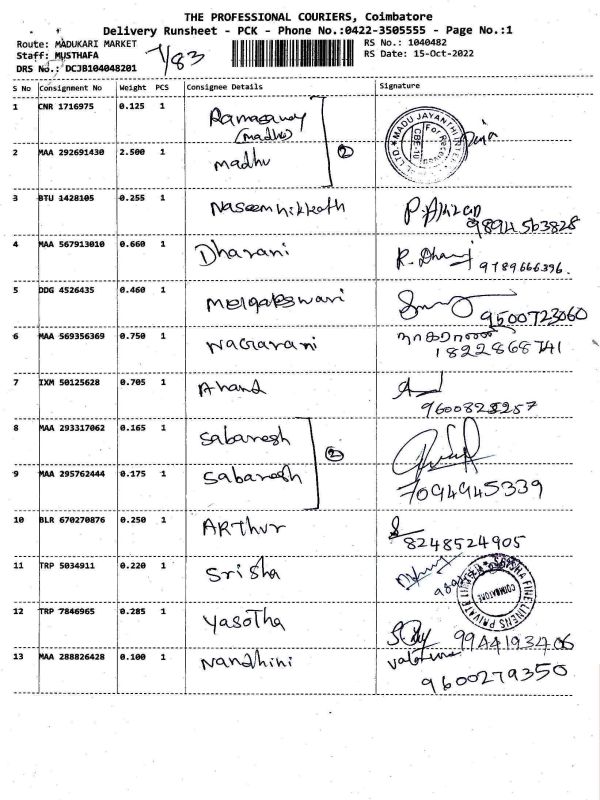 THE PROFESSIONAL COURIERS, Coimbatore
Delivery Runsheet - PCK - Phone No.:0422-3505555 - Page No.:1
Route: MADUKARI MARKET
RS No.: 1040482
Staff: MUSTHAFA
RS Date: 15-Oct-2022
DRS No.: DCJB104048201
S No Consignment No Weight PCS Consignee Details Signature
1 CNR 1716975 0.125 1 Ramasamy
(madhu)
MADU JAYANTHI
For Received
CBE-10
2 MAA 292691430 2.500 1 madhu 2
3 BTU 1428105 0.255 1
9894563828
4 MAA 567913010 0.660 1 Dharani R. Dharani 9789666396.
5 DDG 4526435 0.460 1
9500723060
6 MAA 569356369 0.750 1 Nagarani நாகராணி
1822868741
7 IXM 50125628 0.705 1 Anand
8 MAA 293317062 0.165 1 Sabaresh
2
9 MAA 295762444 0.175 1 Sabaresh
7094945339
10 BLR 670270876 0.250 1 ARThur
8248524905
11 TRP 5034911 0.220 1 Srisha
SRISHA FINE LINENS PRIVATE LIMITED
COIMBATORE
12 TRP 7846965 0.285 1 YasoTha
9944193406
13 MAA 288826428 0.100 1 Nandhini
9600279350